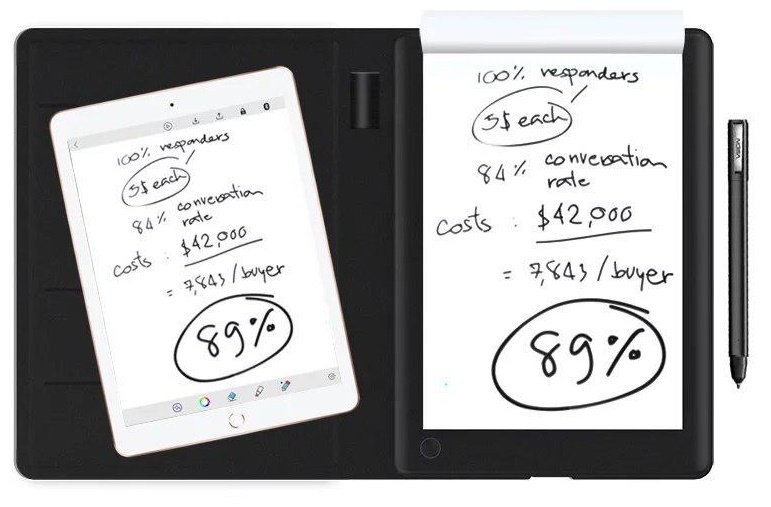 100% responders
5$ each
84% conversation
rate
costs : $42,000
= 7,843 / buyer
89%
100% responders
5$ each
84% conversation
rate
costs : $42,000
= 7,843 / buyer
89%